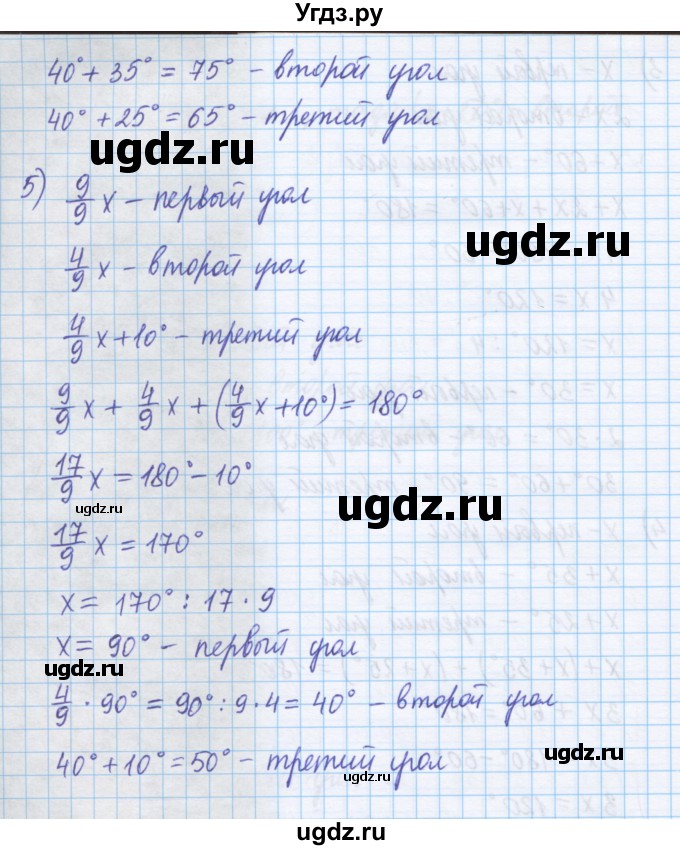 Угдз.ру
40° + 35° = 75° - второй угол
40° + 25° = 65° - третий угол
ugdz.ru
5) 9/9 x - первый угол
ugdz.ru
4/9 x - второй угол
4/9 x + 10° - третий угол
9/9 x + 4/9 x + (4/9 x + 10°) = 180°
17/9 x = 180° - 10°
ugdz.ru
ugdz.ru
17/9 x = 170°
x = 170° : 17 · 9
x = 90° - первый угол
ugdz.ru
4/9 · 90° = 90° : 9 · 4 = 40° - второй угол
ugdz.ru
40° + 10° = 50° - третий угол
ugdz.ru
ugdz.ru